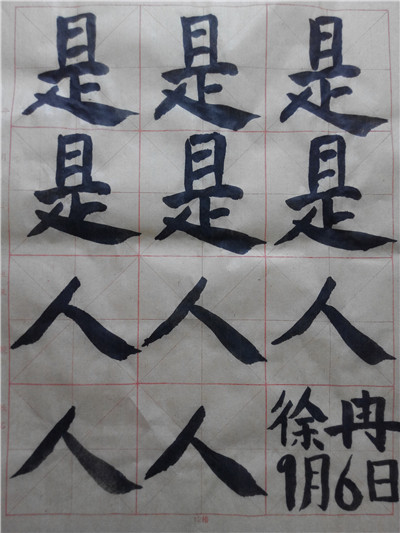 是是是
是是是
人人人
人人
徐冉
9月6日